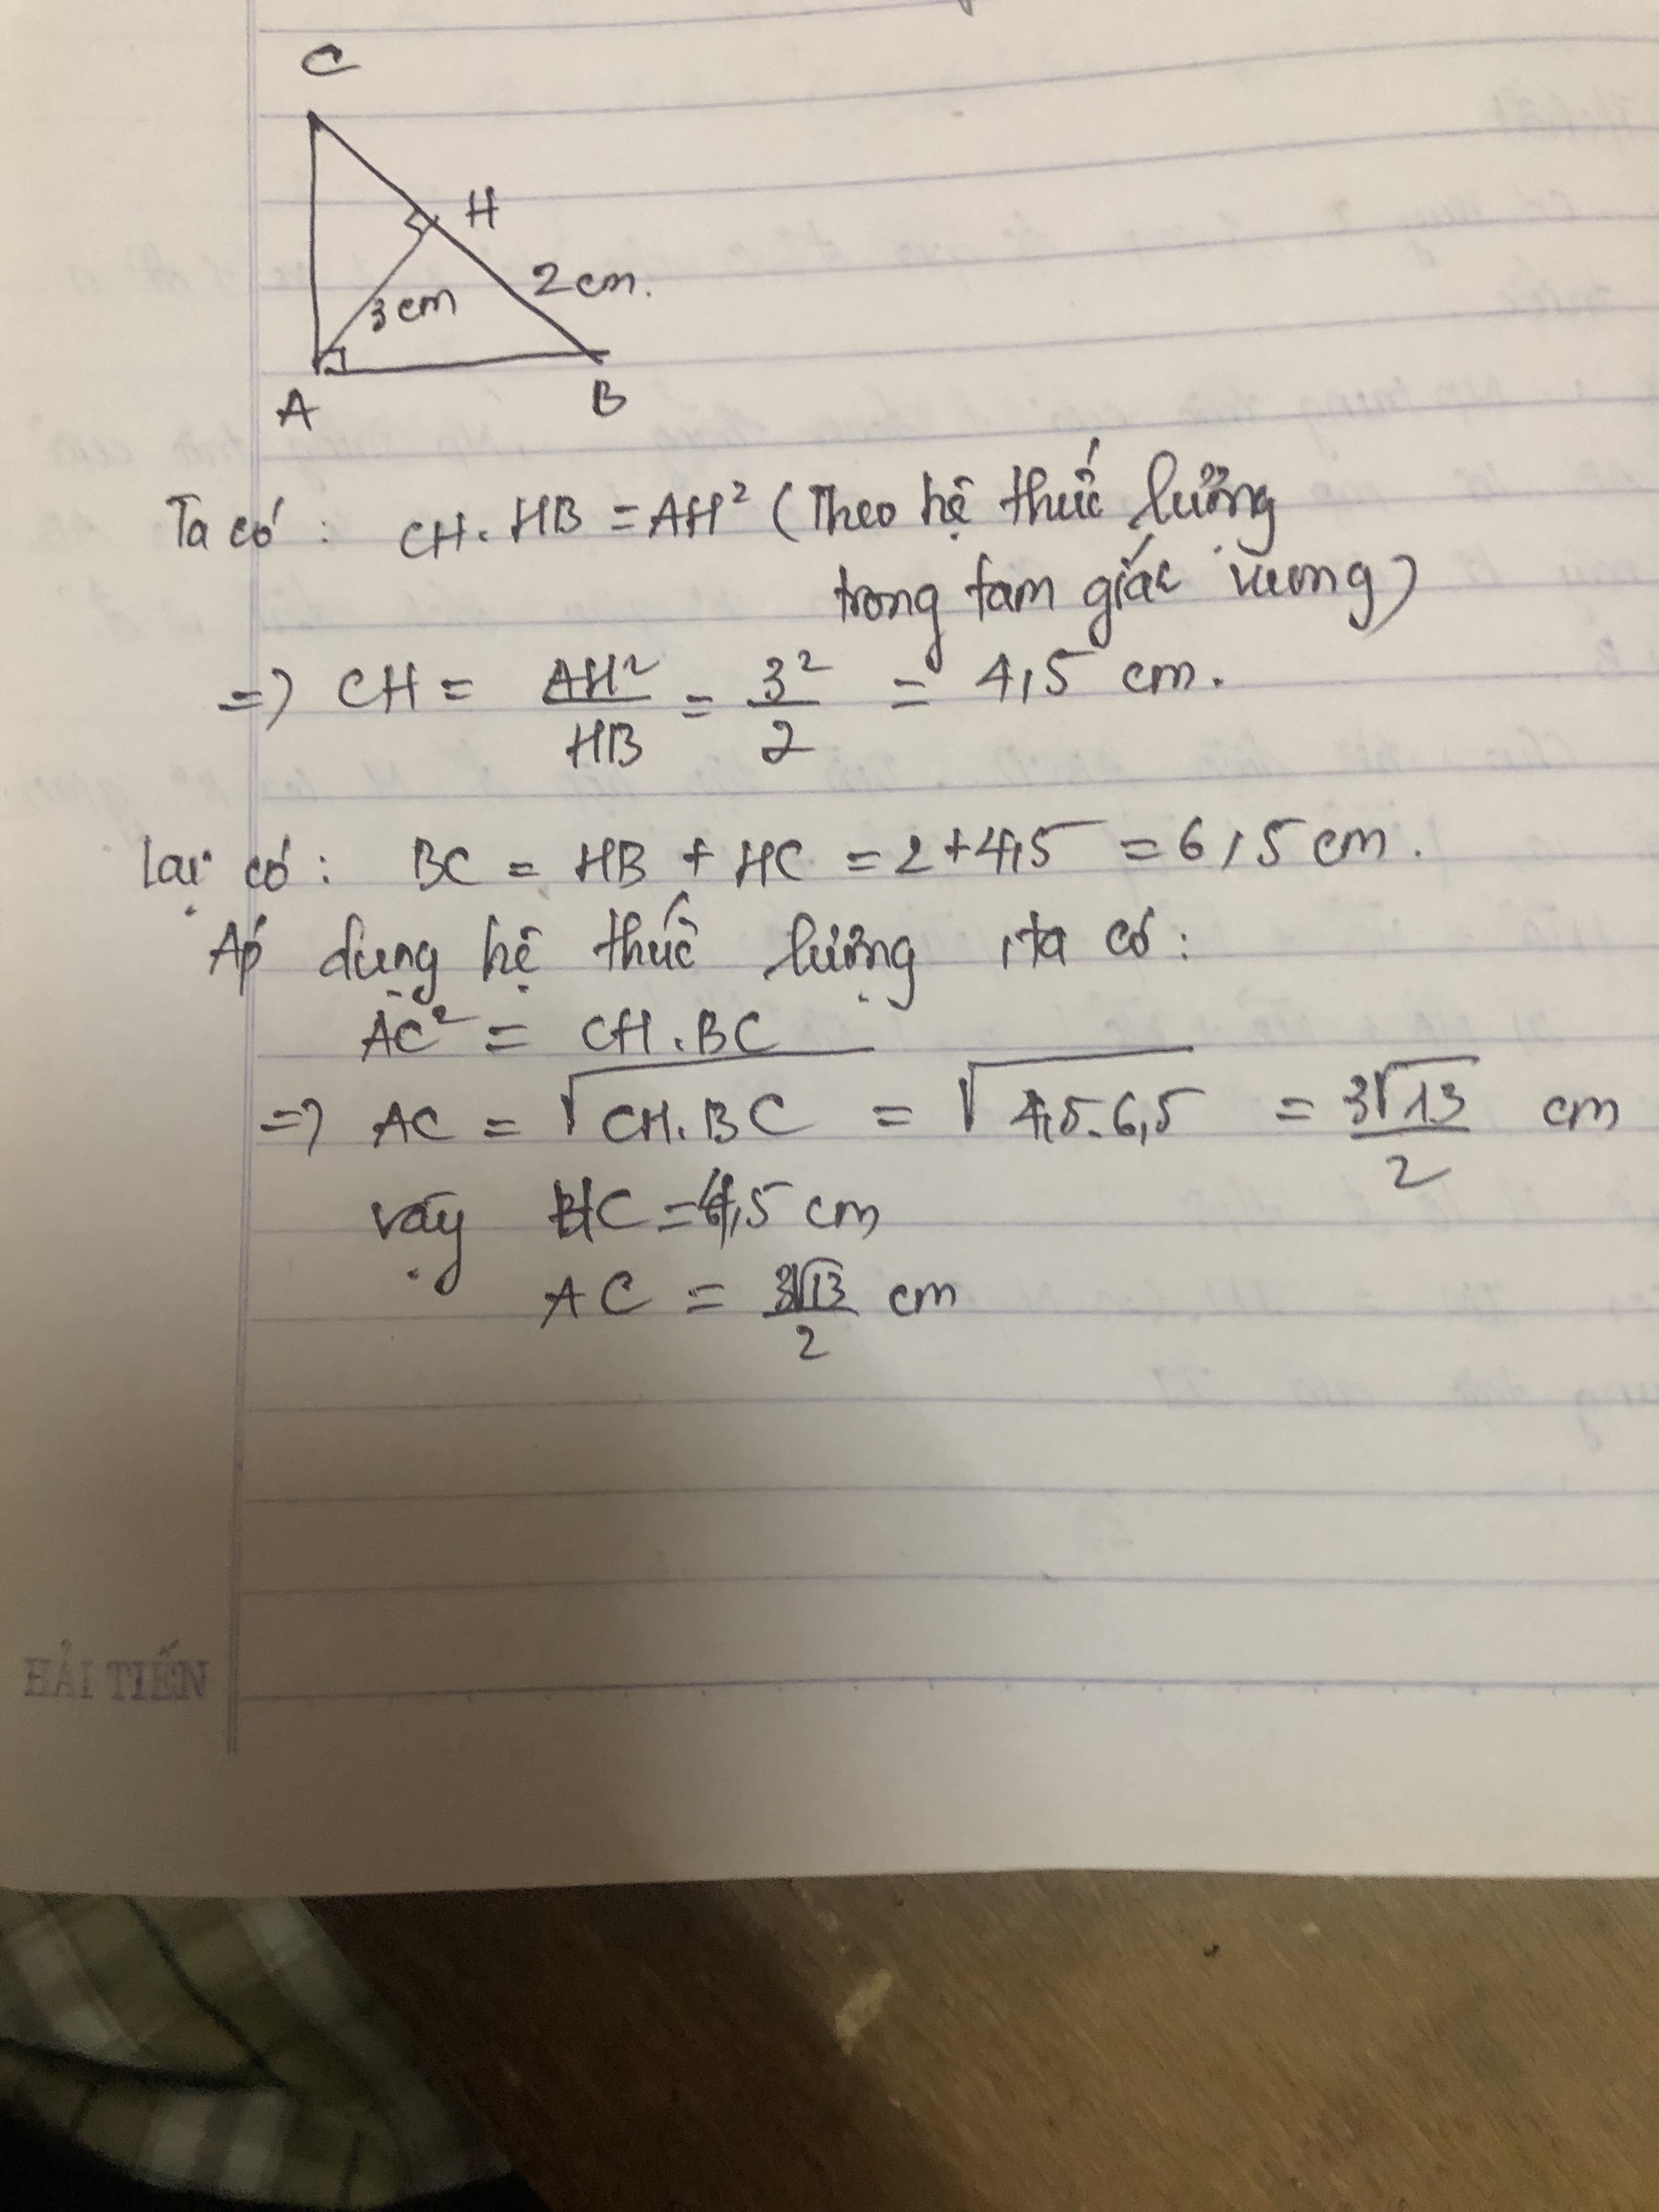 C
H
2cm.
3cm
A
B
Ta có: CH. HB = AH² (Theo hệ thức lượng
trong tam giác vuông)
=> CH = AH²/HB = 3²/2 = 4,5 cm.
Lại có: BC = HB + HC = 2+4,5 = 6,5 cm.
Áp dụng hệ thức lượng, ta có:
AC² = CH.BC
=> AC = √CH.BC = √4,5.6,5 = 3√13/2 cm
vậy HC = 4,5 cm
AC = 3√13/2 cm
HẢI TIẾN